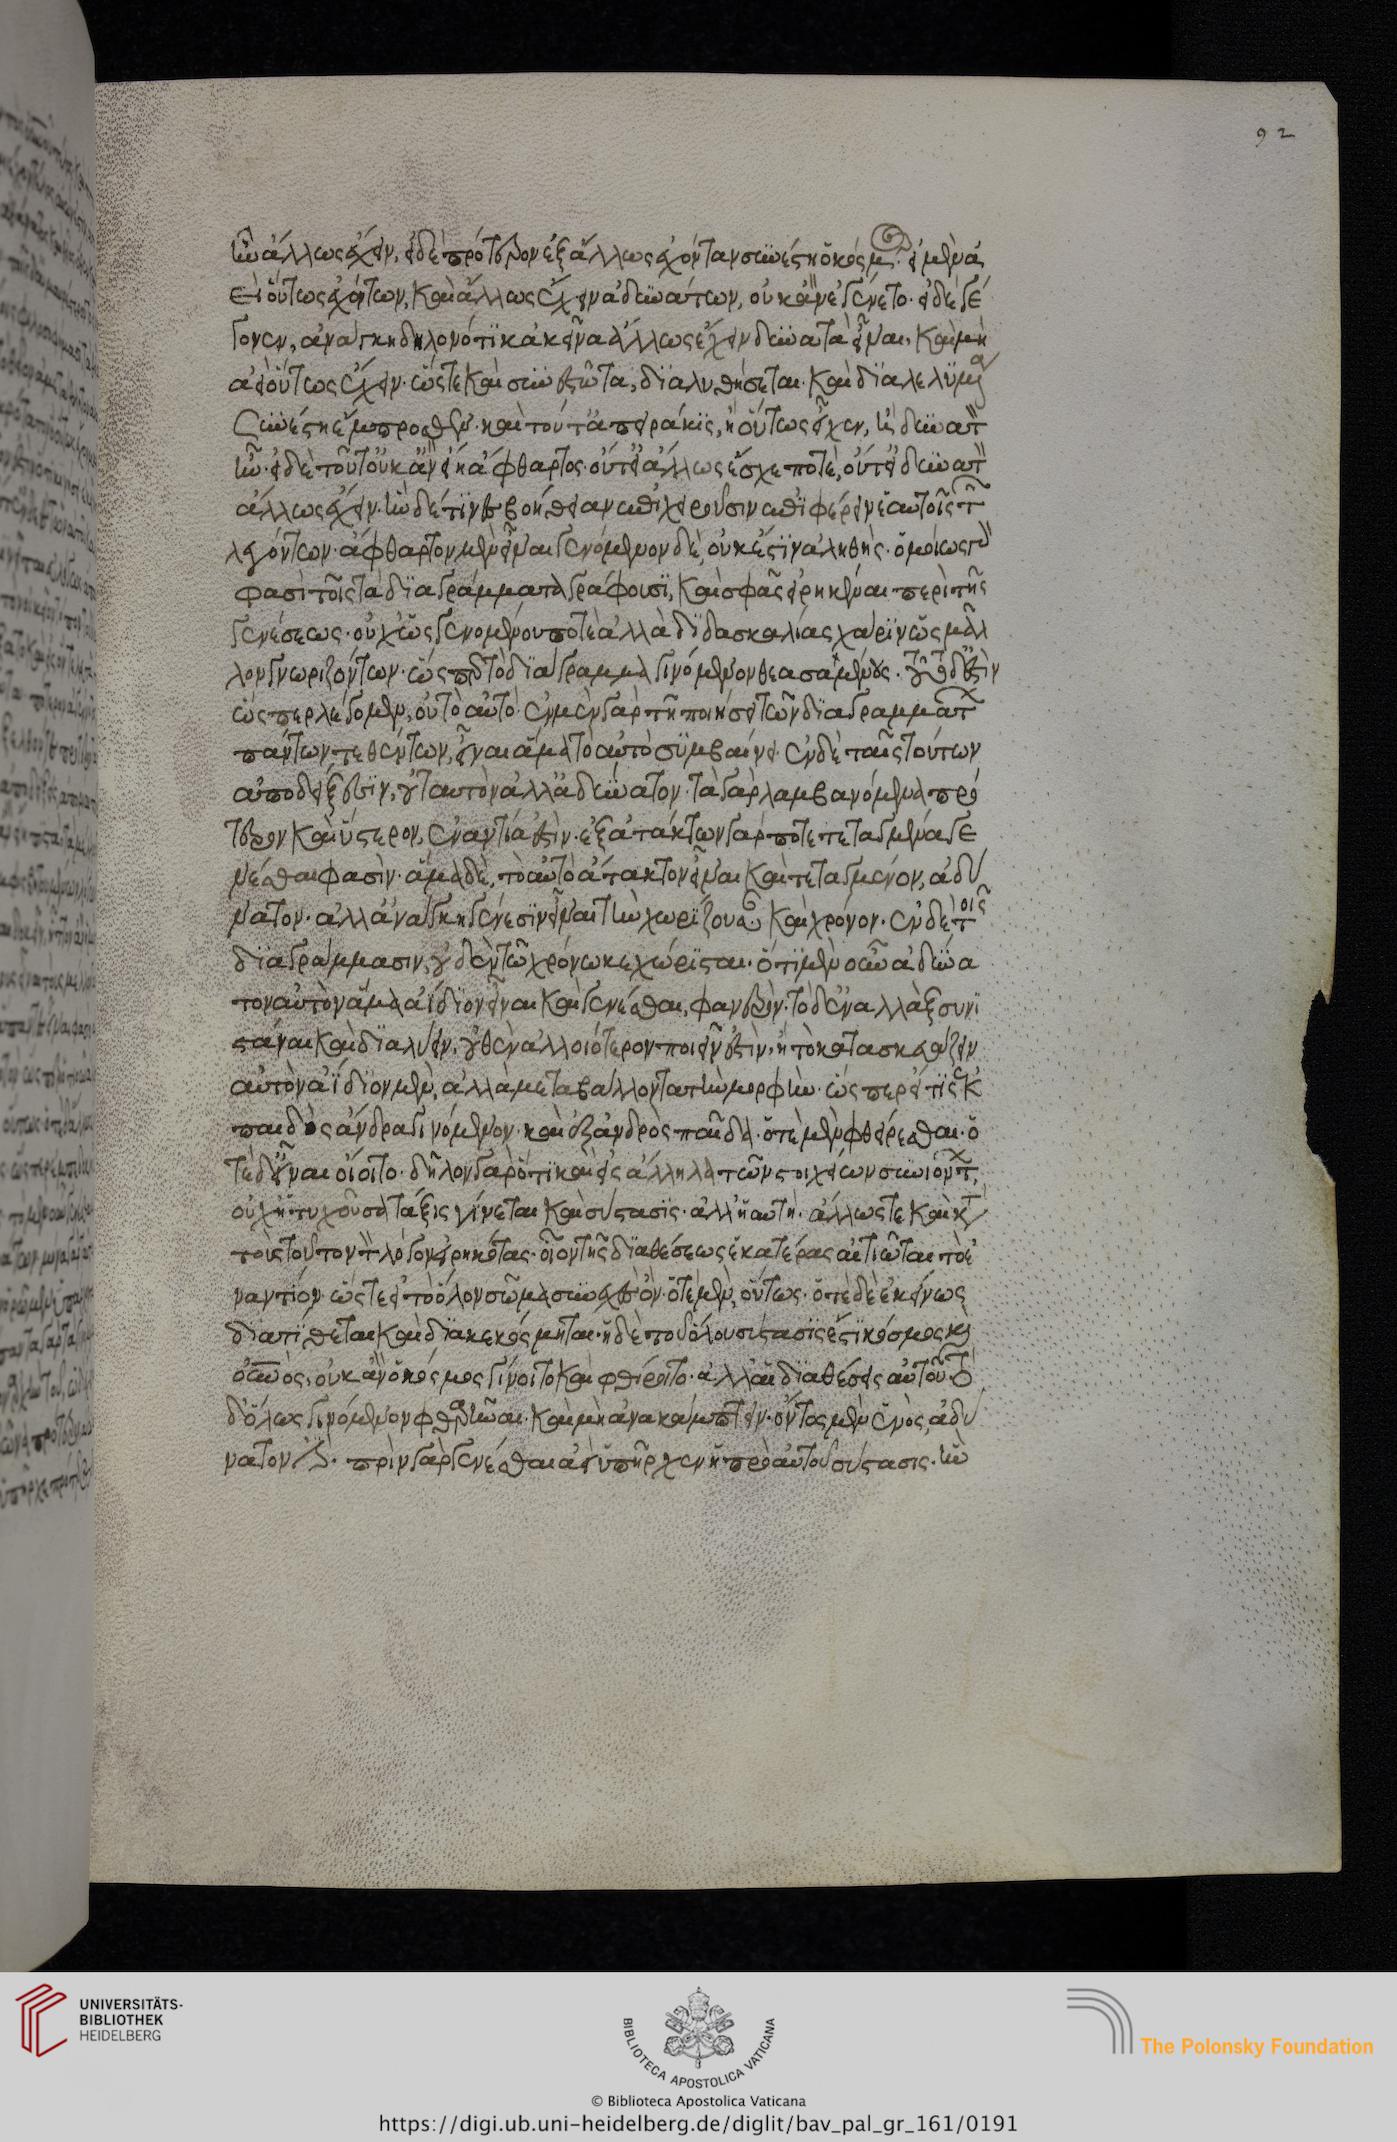 92
ἦν ἄλλως ἔχειν, εἰ δὲ πρότερον ἐξ ἄλλως ἐχόντων συνέστη ὁ κόσμος. εἰ μὲν ἀ
εὶ οὕτως ἐχόντων, καὶ ἄλλως ἔχειν ἀδυνάτων, οὐκ ἂν ἐγένετο. εἰ δὲ γέ
γονεν, ἀνάγκη δηλονότι κἀκεῖνα ἄλλως ἔχειν δυνατὰ εἶναι, καὶ μὴ
ἀεὶ οὕτως ἔχειν. ὥστε καὶ συνεστῶτα, διαλυθήσεται. καὶ διαλελυμένα
συνέστη ἔμπροσθεν. καὶ τοῦτ' ἀπειράκις, ἢ οὕτως εἶχεν, ἢ δυνατ
ἦν. εἰ δὲ τοῦτ' οὐκ ἂν εἴη ἄφθαρτος. οὔτ' εἰ ἄλλως ἔσχε ποτὲ, οὔτ' εἰ δυνατ
ἄλλως ἔχειν. ἣν δέ τινες βοήθειαν ἐπιχειροῦσιν ἐπιφέρειν ἑαυτοῖς τῶν
λεγόντων. ἄφθαρτον μὲν εἶναι γενόμενον δὲ, οὐκ ἔστιν ἀληθής. ὁμοίως γὰρ
φασὶ τοῖς τὰ διαγράμματα γράφουσι, καὶ σφᾶς εἰρηκέναι περὶ τῆς
γενέσεως. οὐχ ὡς γενομένου ποτὲ ἀλλὰ διδασκαλίας χάριν ὡς μᾶλ
λον γνωριζόντων. ὥσπερ τὸ διάγραμμα γινόμενον θεασαμένους. τοῦτο δ' ἐστὶν
ὥσπερ λέγομεν, οὐ τὸ αὐτό. ἐν μὲν γὰρ τῇ ποιήσει τῶν διαγραμμάτων
πάντων τεθέντων, εἶναι ἅμα τὸ αὐτὸ συμβαίνει. ἐν δὲ ταῖς τούτων
ἀποδείξεσιν, οὐ ταυτὸν ἀλλ' ἀδύνατον. τὰ γὰρ λαμβανόμενα πρό
τερον καὶ ὕστερον, ἐναντία ἐστὶν. ἐξ ἀτάκτων γάρ ποτε τεταγμένα γε
νέσθαι φασὶν. ἅμα δὲ, τὸ αὐτὸ ἄτακτον εἶναι καὶ τεταγμένον, ἀδύ
νατον. ἀλλ' ἀνάγκη γένεσιν εἶναι τὴν χωρίζουσαν καὶ χρόνον. ἐν δὲ τοῖς
διαγράμμασιν, οὐδὲν τῷ χρόνῳ κεχώρισται. ὅτι μὲν οὖν ἀδύνα
τον αὐτὸν ἅμα ἀΐδιον εἶναι καὶ γενέσθαι, φανερόν. τὸ δ' ἐναλλὰξ συνι
στάναι καὶ διαλύειν, οὐθὲν ἀλλοιότερον ποιεῖν ἐστὶν, ἢ τὸ κατασκευάζειν
αὐτὸν ἀΐδιον μὲν, ἀλλὰ μεταβάλλοντα τὴν μορφήν. ὥσπερ εἴ τις ἐκ
παιδὸς ἄνδρα γινόμενον. καὶ ἐξ ἀνδρὸς παῖδα. ὁτὲ μὲν φθείρεσθαι. ὁ
τὲ δ' εἶναι οἴοιτο. δῆλον γὰρ ὅτι καὶ εἰς ἄλληλα τῶν στοιχείων συνιόντων,
οὐχ ἡ τυχοῦσα τάξις γίνεται καὶ σύστασις. ἀλλ' ἡ αὐτή. ἄλλως τε καὶ κατὰ
τοὺς τοῦτον τὸν λόγον εἰρηκότας. οἳ τῆς διαθέσεως ἑκατέρας αἰτιῶνται τὸ ἐ
ναντίον. ὥστε εἰ τὸ ὅλον σῶμα συνεχὲς ὂν. ὁτὲ μὲν, οὕτως. ὁτὲ δὲ ἐκείνως
διατίθεται καὶ διακεκόσμηται. ἡ δὲ τοῦ ὅλου σύστασις ἐστὶ κόσμος καὶ
οὐρανός, οὐκ ἂν ὁ κόσμος γίνοιτο καὶ φθείροιτο. ἀλλ' αἱ διαθέσεις αὐτοῦ. τὸ
δ' ὅλως γινόμενον φθαρῆναι. καὶ μὴ ἀνακάμπτειν. ὄντος μὲν ἑνὸς, ἀδύ
νατόν ἐστι. πρὶν γὰρ γενέσθαι ἀεὶ ὑπῆρχεν ἡ πρὸ αὐτοῦ σύστασις. ἣν
UNIVERSITÄTS-
BIBLIOTHEK
HEIDELBERG
BIBLIOTECA APOSTOLICA VATICANA
© Biblioteca Apostolica Vaticana
The Polonsky Foundation
https://digi.ub.uni-heidelberg.de/diglit/bav_pal_gr_161/0191